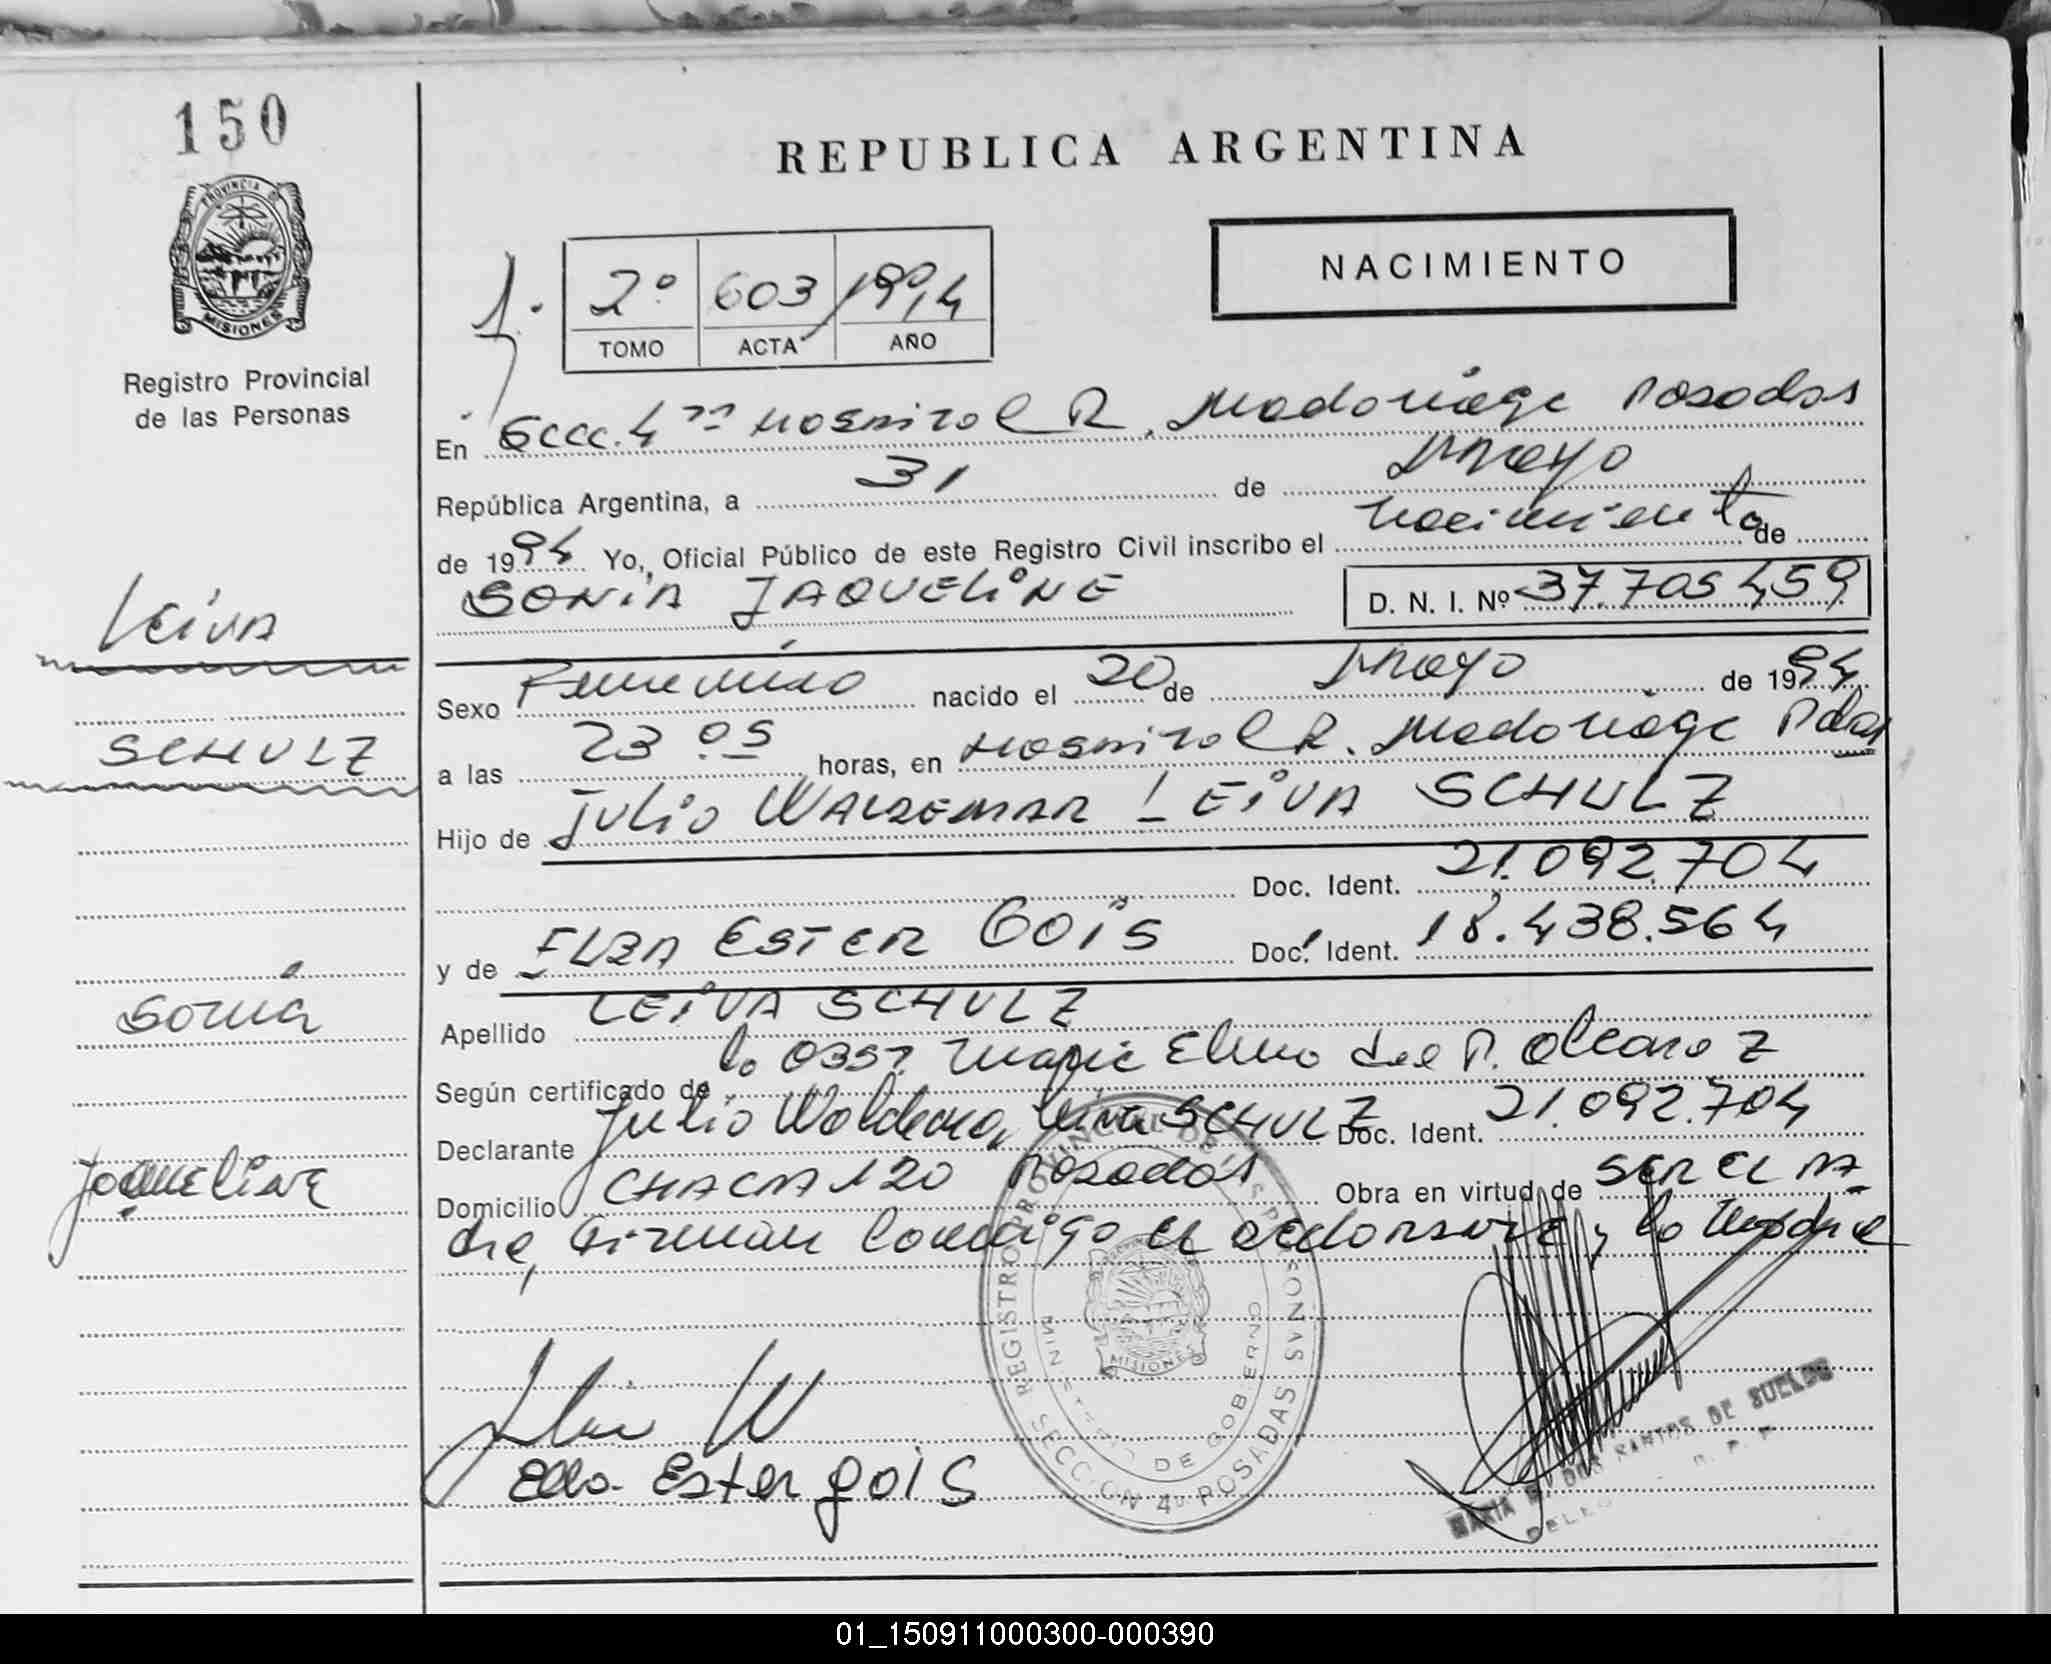 150
REPUBLICA ARGENTINA
PROVINCIA D
MISIONES
Registro Provincial
de las Personas
NACIMIENTO
2º 603 1994
TOMO ACTA AÑO
En Secc. 4ta Hospital R. Madariaga Posadas
República Argentina, a 31 de Mayo
de 1994 Yo, Oficial Público de este Registro Civil inscribo el nacimiento de
SONIA JAQUELINE D. N. I. Nº 37.705.459
LEIVA
Sexo Femenino nacido el 20 de Mayo de 1994
SCHULZ
a las 23 05 horas, en Hospital R. Madariaga Pdas
Hijo de JULIO WALDEMAR LEIVA SCHULZ
Doc. Ident. 21.092.704
y de ELBA ESTER GOIS Doc. Ident. 18.438.564
Sonia
Apellido LEIVA SCHULZ
Según certificado de la Obst. María Elena del P. Alcaraz
Declarante Julio Waldemar Leiva SCHULZ Doc. Ident. 21.092.704
Jaqueline
Domicilio CHACRA 120 Posadas Obra en virtud de SER EL PA-
dre, Firman conmigo el declarante y la Madre
Julio W
Elba Ester gois
REGISTRO PROVINCIAL DE LAS PERSONAS
MINISTERIO DE GOBIERNO
MISIONES
SECCION 4ª POSADAS
MARIA DOS SANTOS DE SUELDO
01_150911000300-000390